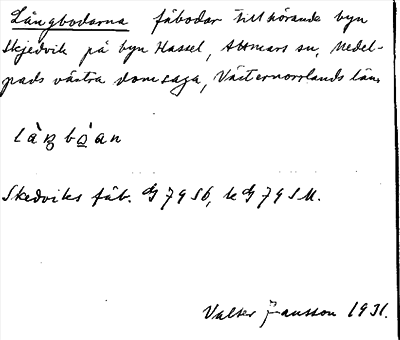 Långbodarna fäbodar tillhörande byn
Skjedvik på byn Hassel, Attmars sn, Medel-
pads västra domsaga, Västernorrlands län.
Skedviks fäb.
Valter Jansson 1931.